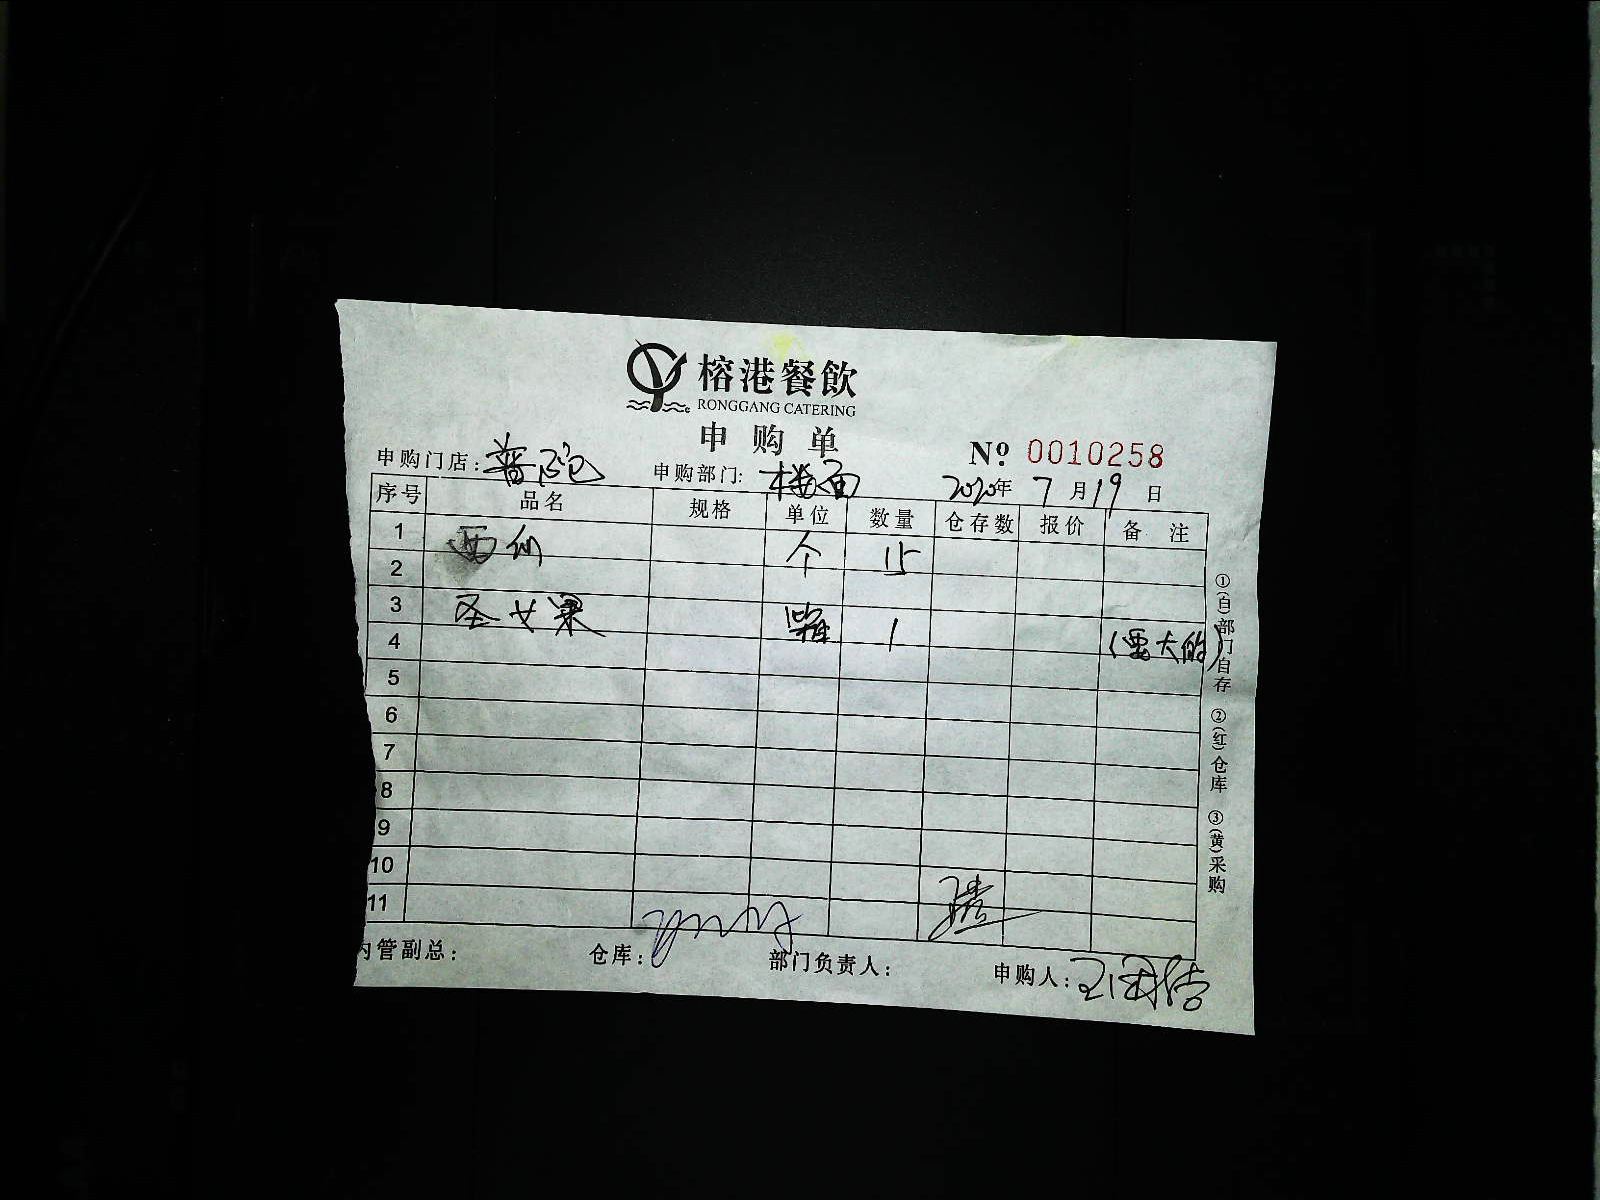 榕港餐飲
RONGGANG CATERING
申购单
№ 0010258
申购门店：普陀 申购部门：楼面 2020年7月19日
序号 品名 规格 单位 数量 仓存数 报价 备 注
1 西仙 个 15
2
3 圣女果 箱 1 (要大的)
4
5
6
7
8
9
10
11
内管副总： 仓库： 部门负责人： 申购人：
①(白)部门自存 ②(红)仓库 ③(黄)采购